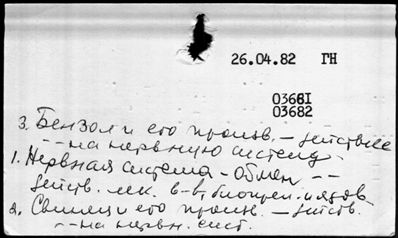 26.04.82 ГН
03661
03682
3. Бензол и его произв. – действие
-- на нервную систему.
1. Нервная система – обмен --
действ. лек. в-в, биопреп. и ядов.
2. Свинец и его произв. – действ.
-- на нервн. сист.